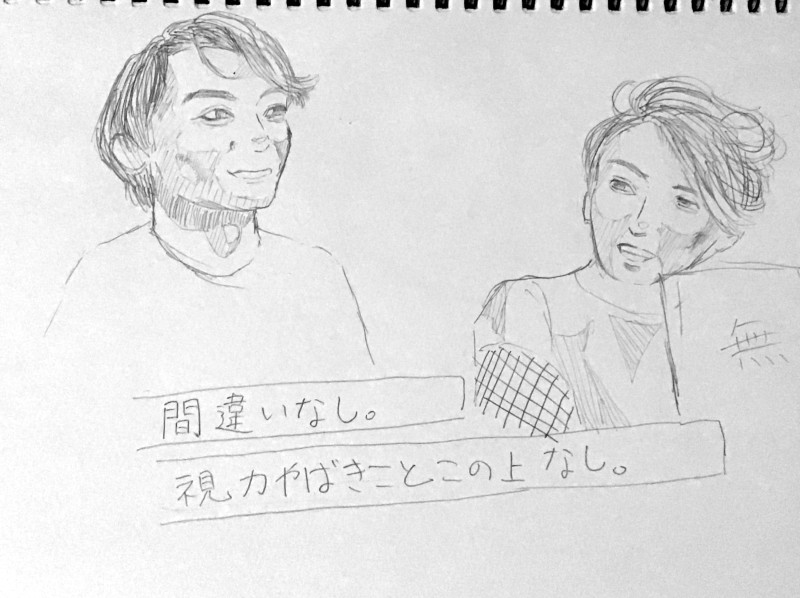 無
間違いなし。
視力やばきことこの上なし。